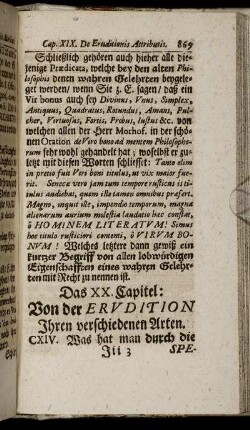 Cap. XIX. De Eruditionis Attributis. 869
Schließlich gehören auch hieher alle die-
jenige Prædicata, welche bey den alten Phi-
losophis denen wahren Gelehrten beygele-
get werden, wenn Sie z. E. sagen/ daß ein
Vir bonus auch sey Divinus, Unus, Simplex,
Antiquus, Quadratus, Rotundus, Amans, Pul-
cher, Virtuosus, Fortis, Probus, Justus &c. von
welchen allen der Herr Morhof. in der schö-
nen Oration de Viro bono ad mentem Philosopho-
rum sehr wohl gehandelt hat; woselbst er zu-
letzt mit diesen Worten schliesset: Tanto olim
in pretio fuit Viri boni titulus, ut vix major fue-
rit. Seneca vero jam tum tempore rusticus ti-
tulus audiebat, quam ille tamen omnibus præfert.
Magno, inquit ille, impendio temporum, magna
alienarum aurium molestia laudatio hæc constat,
ô HOMINEM LITERATUM! Simus
hoc titulo rusticiori contenti, ô VIRUM BO-
NUM! Welches letztere dann gewiß ein
kurtzer Begriff von allen lobwürdigen
Eigenschafften eines wahren Gelehr-
ten mit Recht zu nennen ist.
Das XX. Capitel:
Von der ERUDITION
Ihren verschiedenen Arten.
CXIV. Was hat man durch die
Iii 3 SPE-